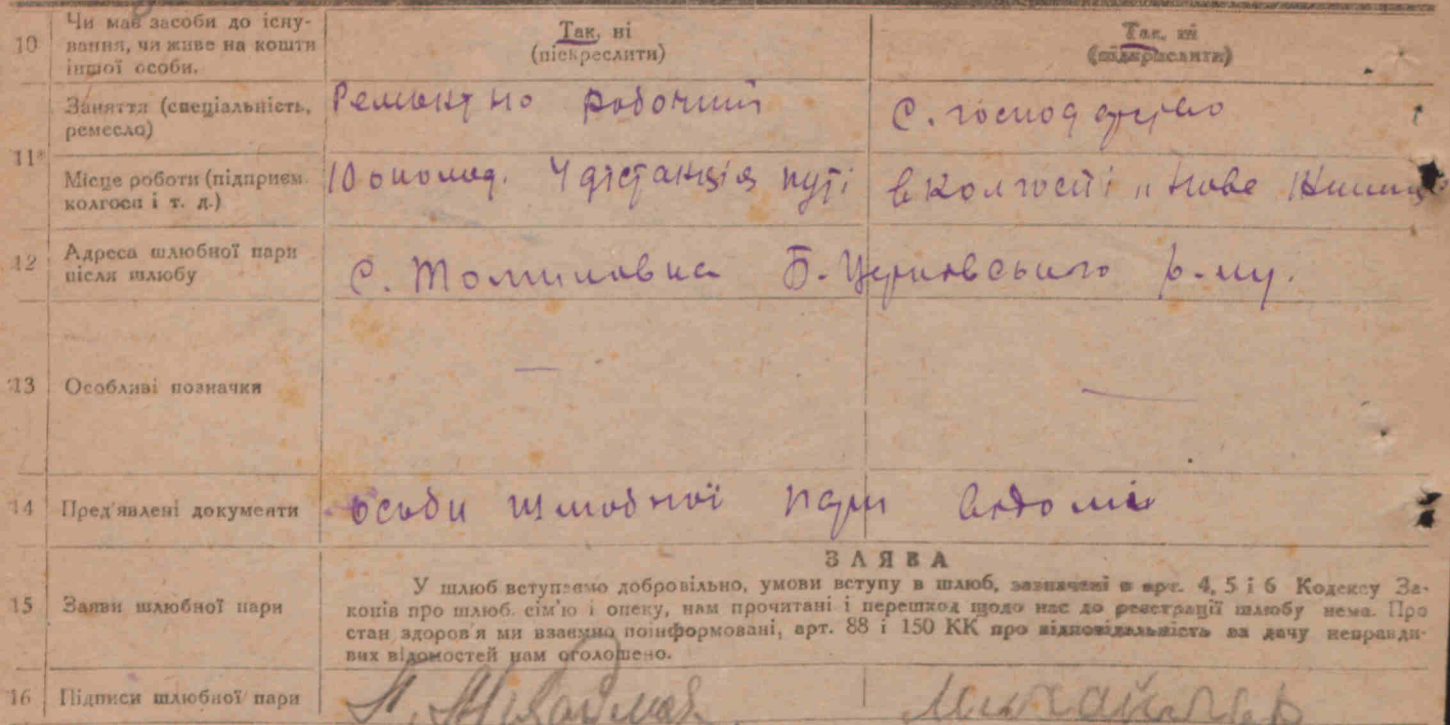 10 Чи має засоби до існу-
вання, чи живе на кошти
іншої особи.
Так, ні
(піскреслити)
Так, ні
(підкреслити)
11* Заняття (спеціальність,
ремесло)
Ремонтно робочий
С. господарство
Місце роботи (підприєм.
колгосп і т. д.)
10 околод. 4 дістанція путі
в колгоспі "Нове Життя"
12 Адреса шлюбної пари
після шлюбу
С. Томиловка Б. Церковського р-ну.
13 Особливі позначки — —
14 Пред'явлені документи особи шлюбної пари відомі
15 Заяви шлюбної пари
ЗАЯВА
У шлюб вступаємо добровільно, умови вступу в шлюб, зазначені в арт. 4, 5 і 6 Кодексу За-
конів про шлюб, сім'ю і опеку, нам прочитані і перешкод щодо нас до реєстрації шлюбу нема. Про
стан здоров'я ми взаємно поінформовані, арт. 88 і 150 КК про відповідальність за дачу неправди-
вих відомостей нам оголошено.
16 Підписи шлюбної пари